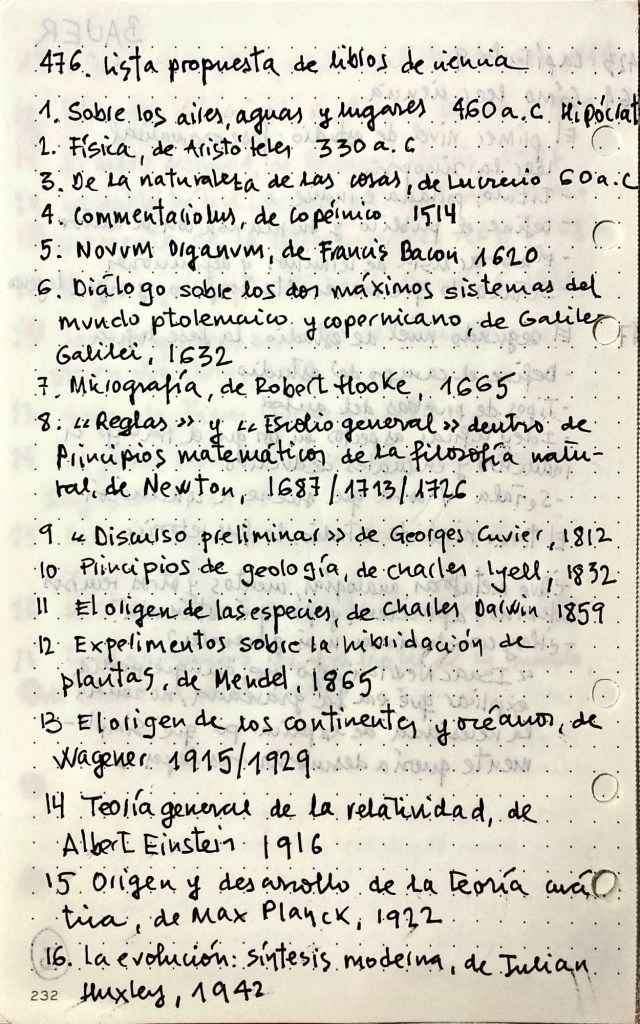 476. Lista propuesta de libros de ciencia
1. Sobre los aires, aguas y lugares 460 a.C Hipócrat
2. Física, de Aristóteles 330 a.C
3. De la naturaleza de las cosas, de Lucrecio 60 a.C
4. Commentariolus, de Copérnico 1514
5. Novum Organum, de Francis Bacon 1620
6. Diálogo sobre los dos máximos sistemas del
mundo ptolemaico y copernicano, de Galileo
Galilei, 1632
7. Micrografía, de Robert Hooke, 1665
8. "Reglas" y "Escolio general" dentro de
Principios matemáticos de la filosofía natu-
ral, de Newton, 1687/1713/1726
9 "Discurso preliminar" de Georges Cuvier, 1812
10 Principios de geología, de Charles Lyell, 1832
11 El origen de las especies, de Charles Darwin 1859
12 Experimentos sobre la hibridación de
plantas, de Mendel, 1865
13 El origen de los continentes y océanos, de
Wagener 1915/1929
14 Teoría general de la relatividad, de
Albert Einstein 1916
15 Origen y desarrollo de la teoría cuán
tica, de Max Planck, 1922
16. La evolución: síntesis moderna, de Julian
Huxley, 1942
232